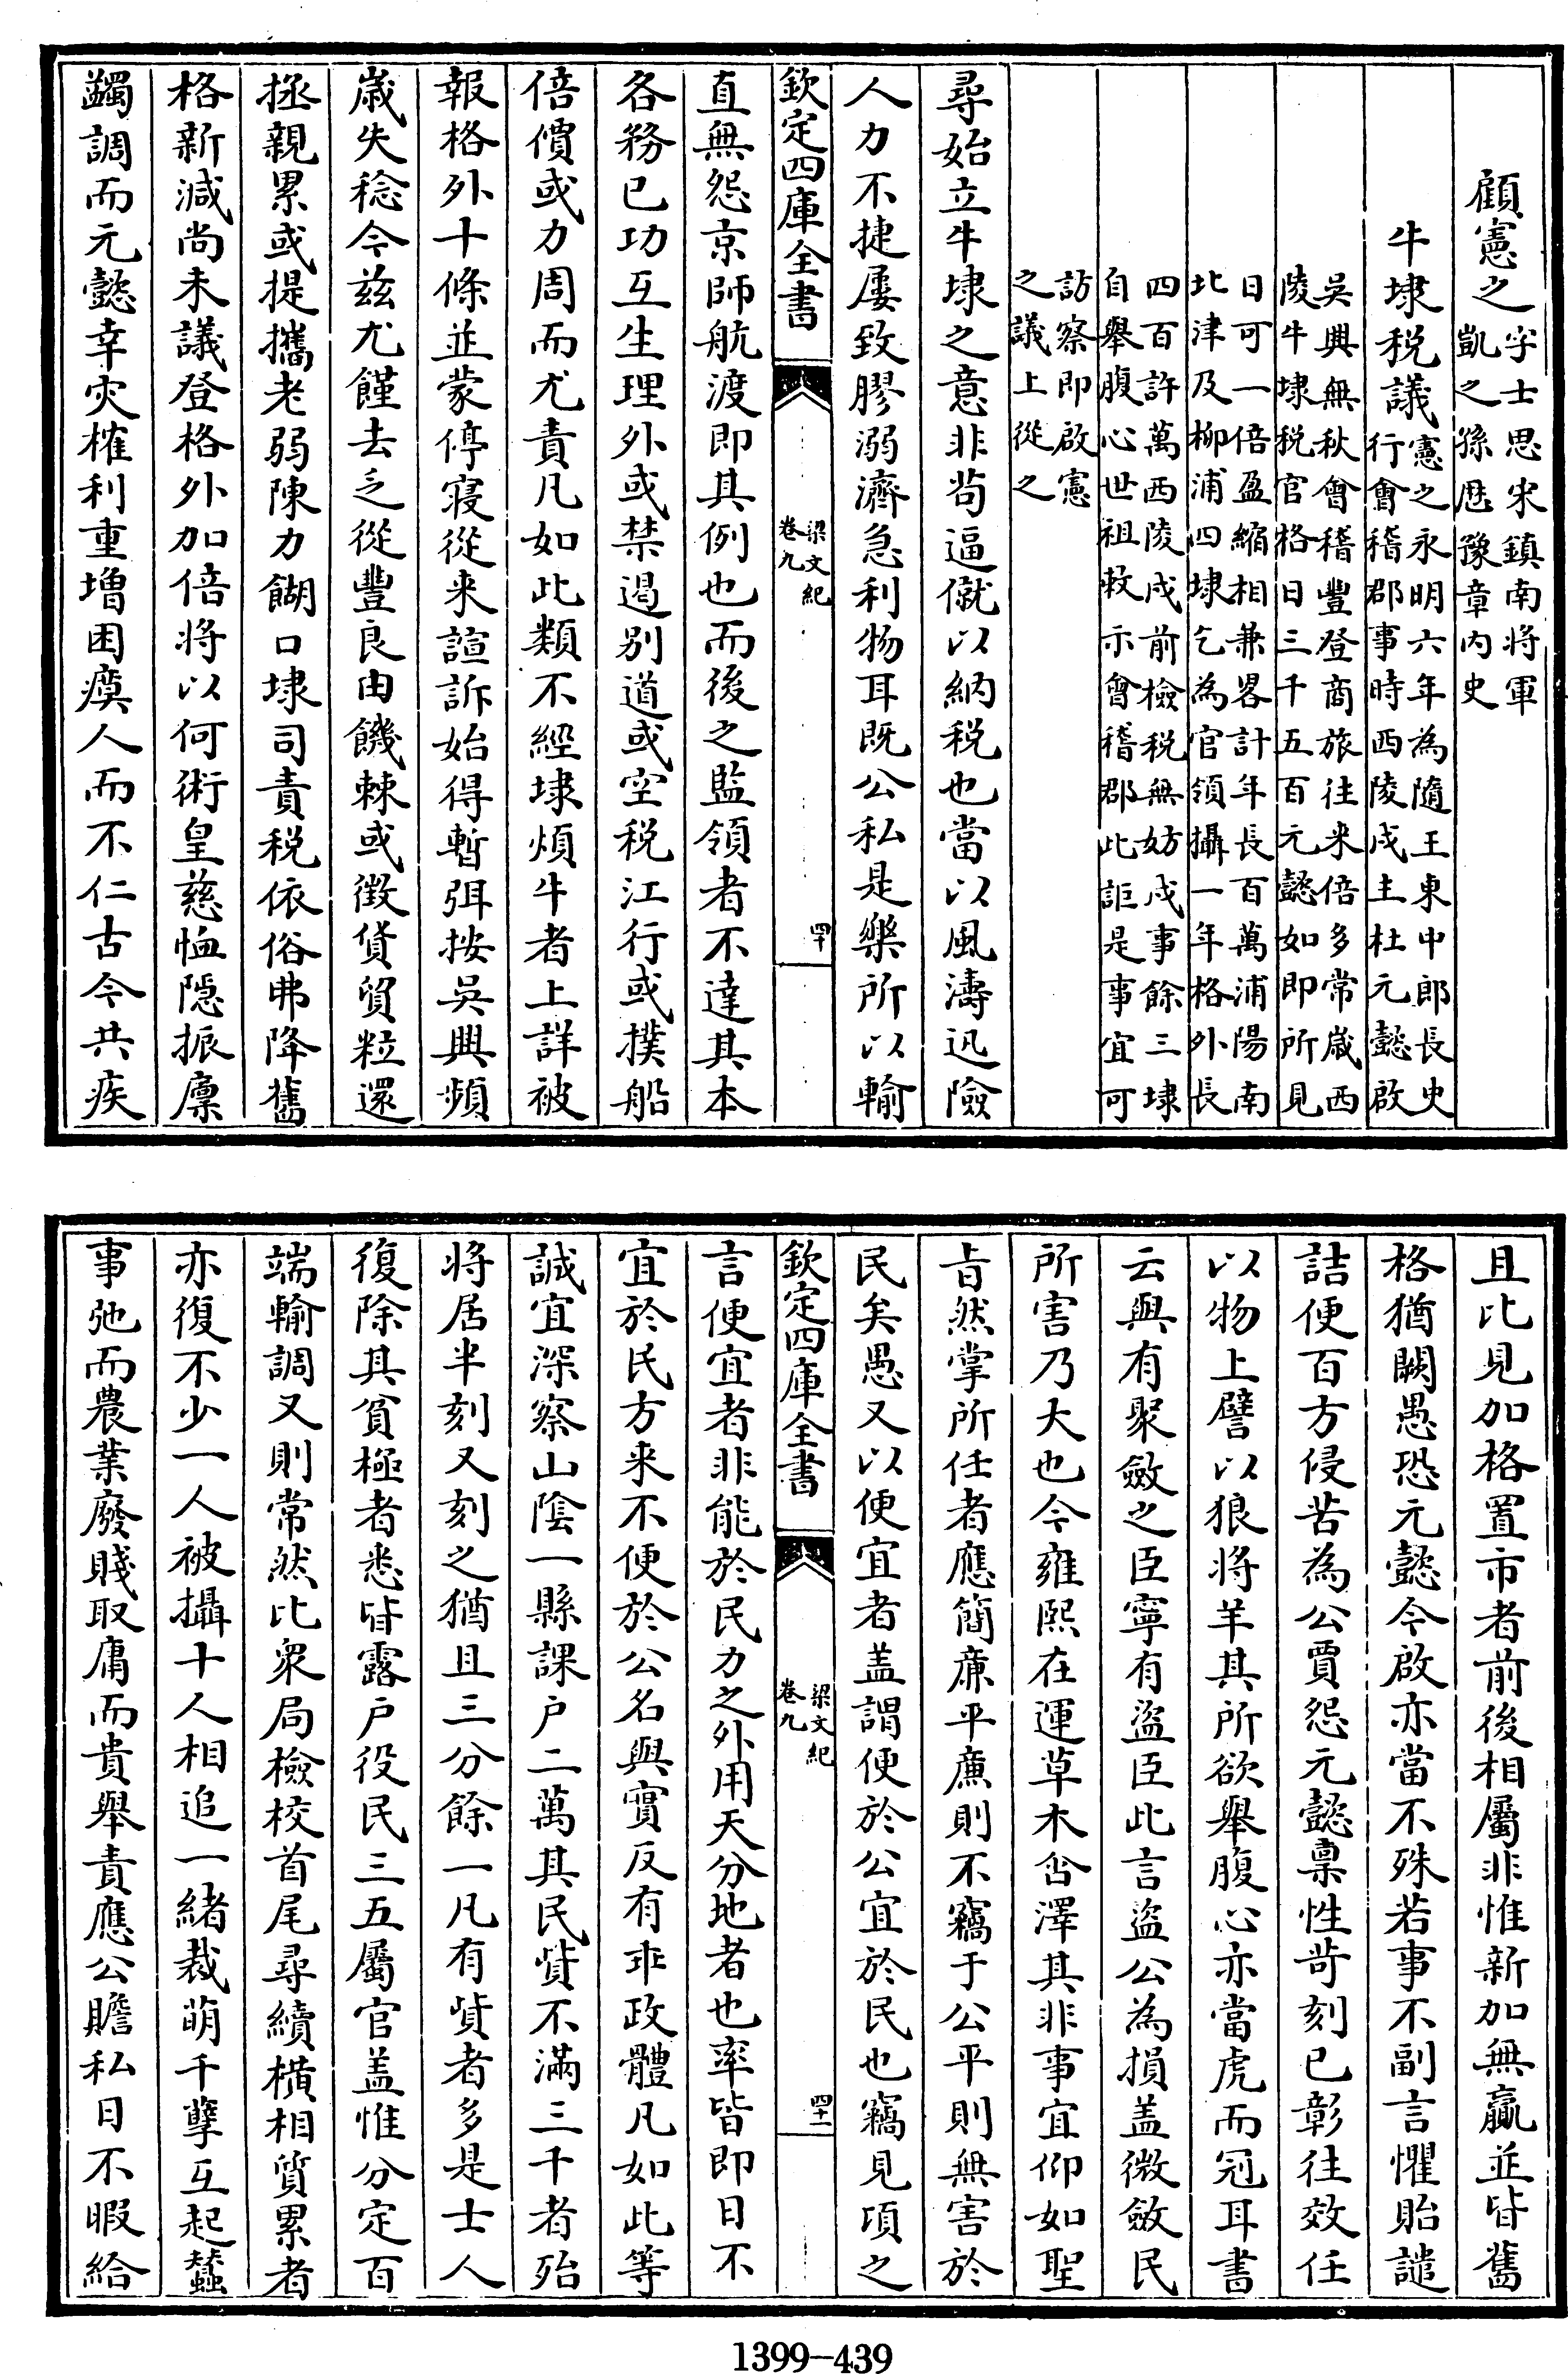 顧憲之字士思宋鎮南將軍
凱之孫歴豫章内史
牛埭税議憲之永明六年為隨王東中郎長史
行會稽郡事時西陵戍主杜元懿啟
吳興無秋會稽豐登商旅往来倍多常歳西
陵牛埭税官格日三千五百元懿如即所見
日可一倍盈縮相兼畧計年長百萬浦陽南
北津及柳浦四埭乞為官領攝一年格外長
四百許萬西陵戍前檢税無妨戍事餘三埭
自舉腹心世祖敕示會稽郡此詎是事宜可
訪察即啟憲
之議上從之
尋始立牛埭之意非苟逼僦以納税也當以風濤迅險
人力不捷屢致膠溺濟急利物耳既公私是樂所以輸
欽定四庫全書
梁文紀
卷九
四十
直無怨京師航渡即其例也而後之監領者不達其本
各務已功互生理外或禁遏别道或空税江行或撲船
倍價或力周而尤責凡如此類不經埭煩牛者上詳被
報格外十條並蒙停寢從来諠訴始得暫弭按吳興頻
歳失稔今兹尤饉去乏從豐良由饑棘或徴貨貿粒還
拯親累或提攜老弱陳力餬口埭司責税依俗弗降舊
格新減尚未議登格外加倍將以何術皇慈恤隠振廪
蠲調而元懿幸灾榷利重增困瘼人而不仁古今共疾
且比見加格置市者前後相屬非惟新加無贏並皆舊
格猶闕愚恐元懿今啟亦當不殊若事不副言懼貽譴
詰便百方侵苦為公賈怨元懿禀性苛刻已彰往效任
以物上譬以狼將羊其所欲舉腹心亦當虎而冠耳書
云與有聚斂之臣寧有盜臣此言盜公為損盖微斂民
所害乃大也今雍熙在運草木含澤其非事宜仰如聖
旨然掌所任者應簡亷平亷則不竊于公平則無害於
民矣愚又以便宜者盖謂便於公宜於民也竊見項之
欽定四庫全書
梁文紀
卷九
四十一
言便宜者非能於民力之外用天分地者也率皆即日不
宜於民方来不便於公名與實反有乖政體凡如此等
誠宜深察山陰一縣課户二萬其民貲不滿三千者殆
將居半刻又刻之猶且三分餘一凡有貲者多是士人
復除其貧極者悉皆露户役民三五屬官盖惟分定百
端輸調又則常然比衆局檢校首尾尋續横相質累者
亦復不少一人被攝十人相追一緒裁萌千孽互起蠶
事弛而農業廢賤取庸而貴舉責應公贍私日不暇給
1399-439